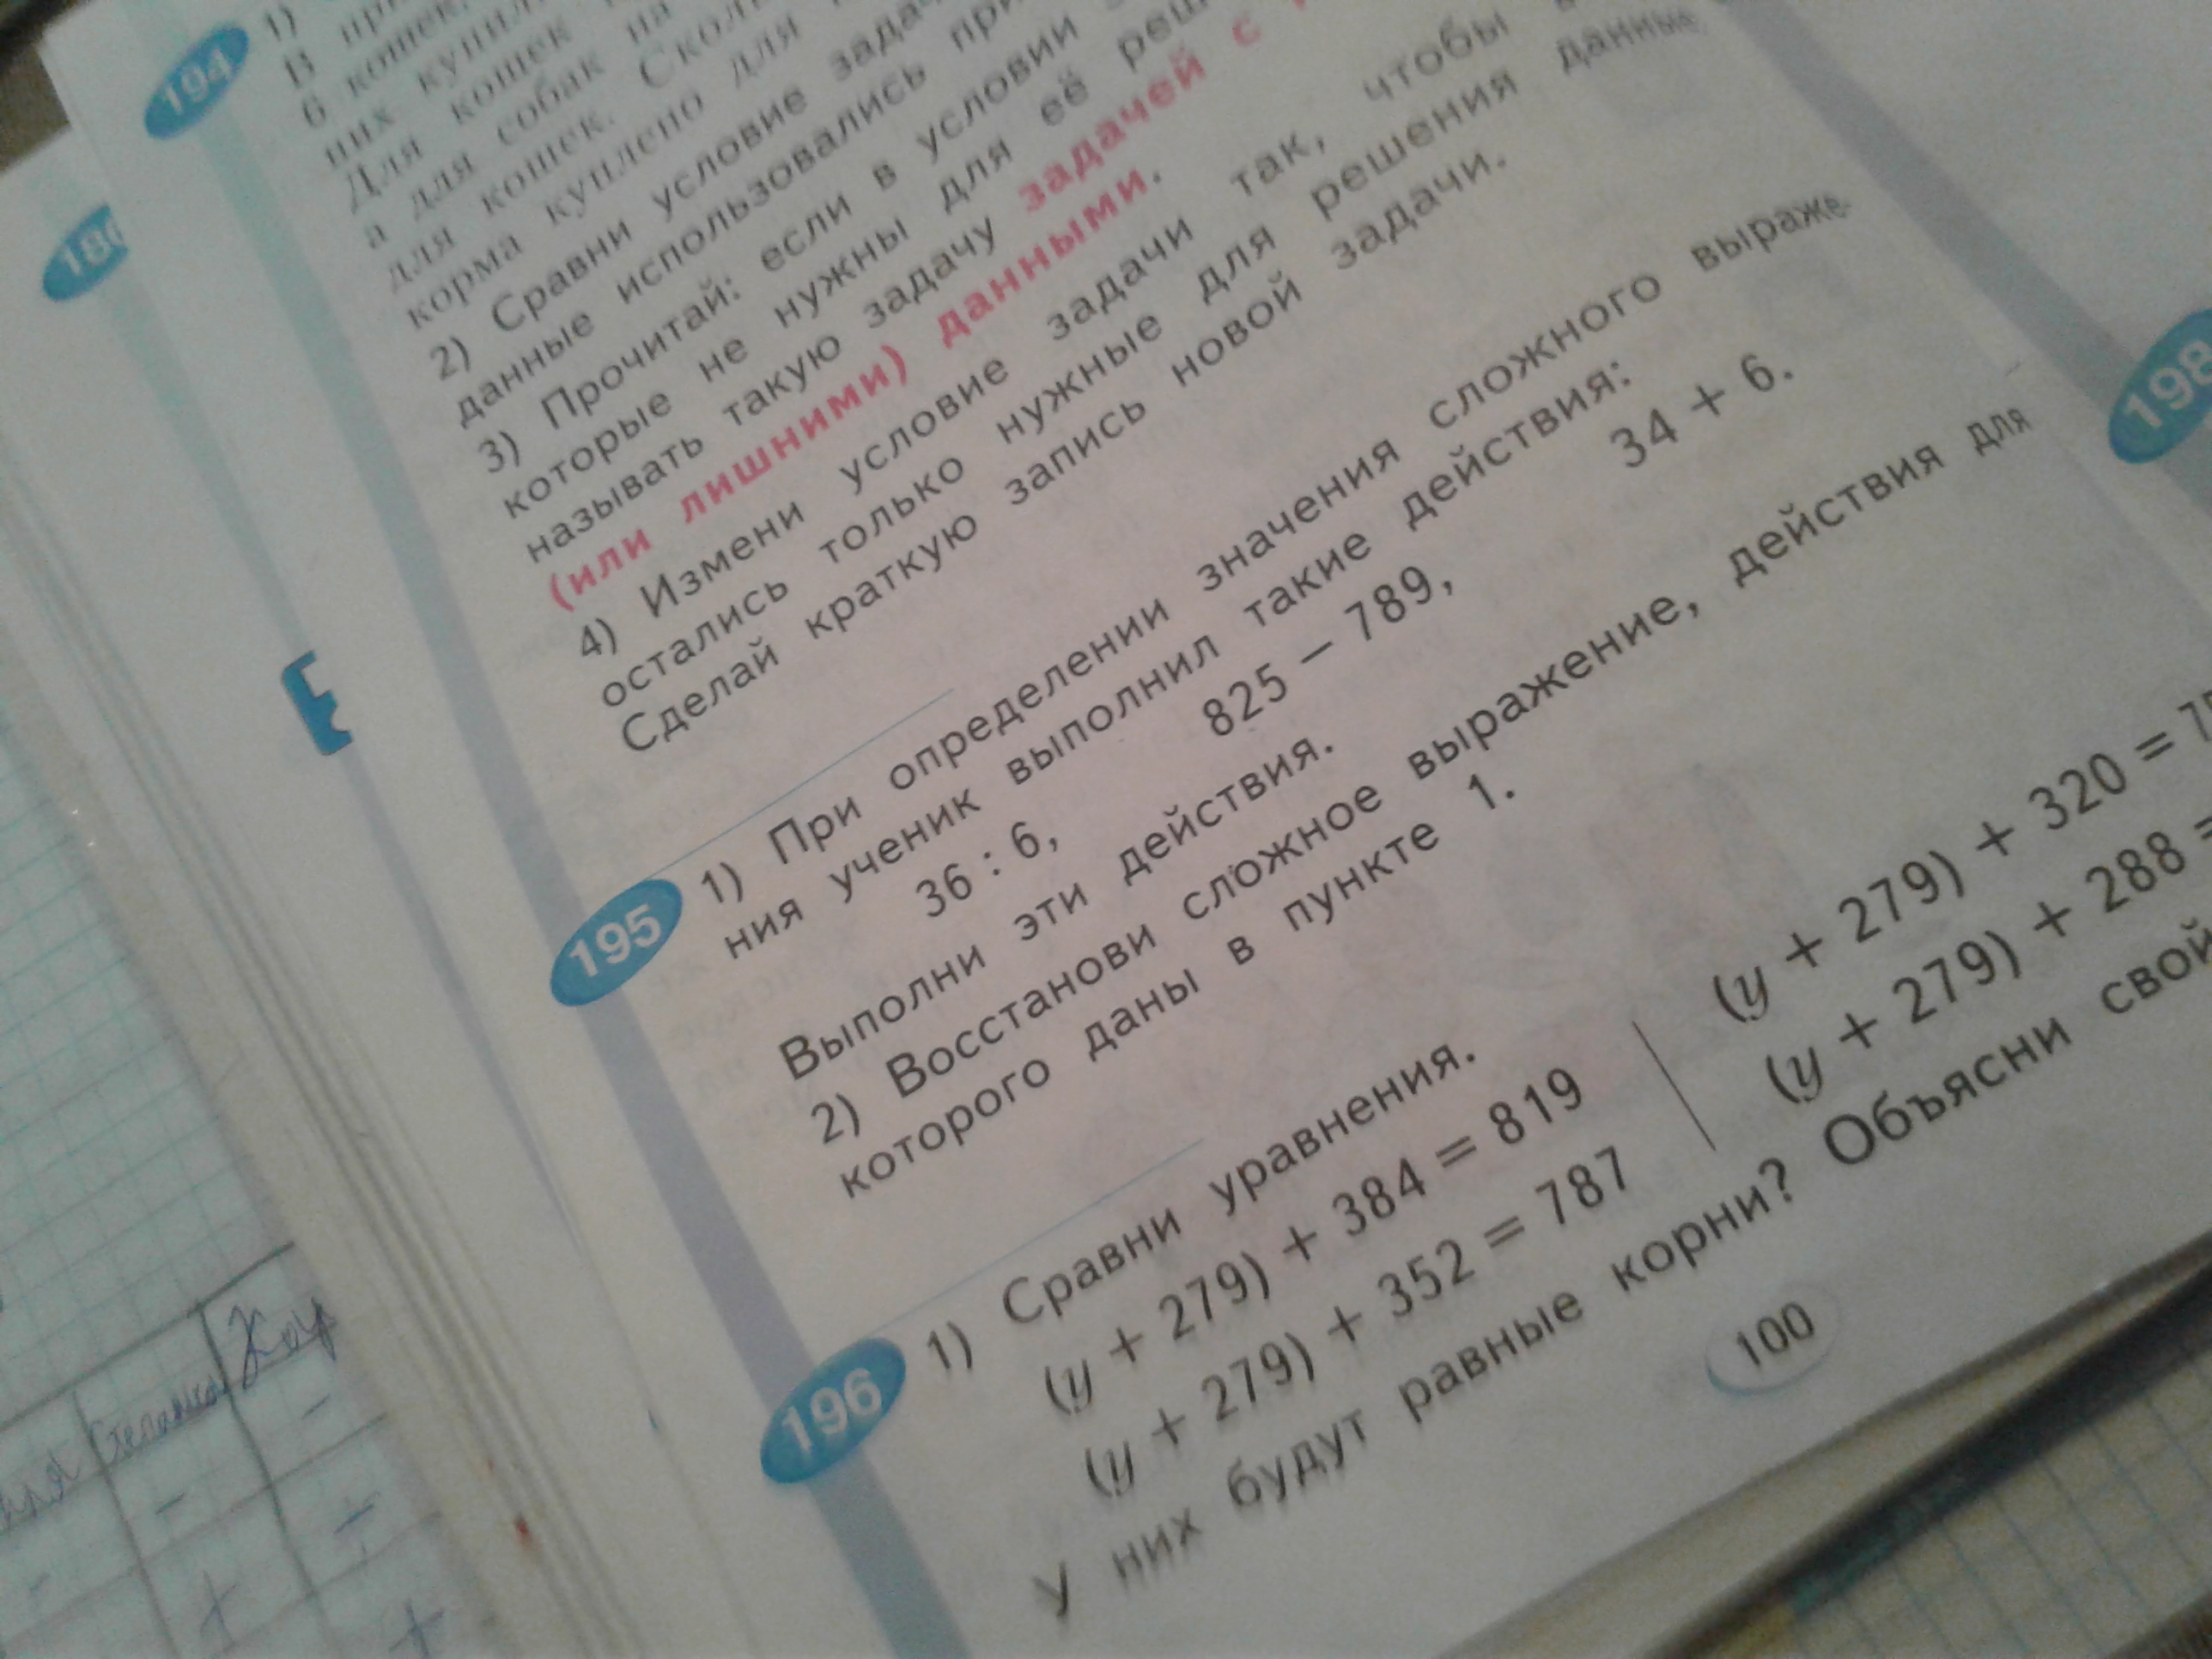 194
1)
В
6 кошек.
них купил
Для кошек
а для собак на
для кошек. Сколь
корма куплено для
2) Сравни условие задач
данные использовались при
3) Прочитай: если в условии
которые не нужны для её реш
называть такую задачу задачей с
(или лишними) данными.
4) Измени условие задачи так, чтобы
остались только нужные для решения данные
Сделай краткую запись новой задачи.
195
1) При определении значения сложного выраже-
ния ученик выполнил такие действия:
36 : 6, 825 – 789, 34 + 6.
Выполни эти действия.
2) Восстанови сложное выражение, действия для
которого даны в пункте 1.
196
1) Сравни уравнения.
(y + 279) + 384 = 819
(y + 279) + 320 = 7
(y + 279) + 352 = 787
(y + 279) + 288 =
У них будут равные корни? Объясни свой
100
198